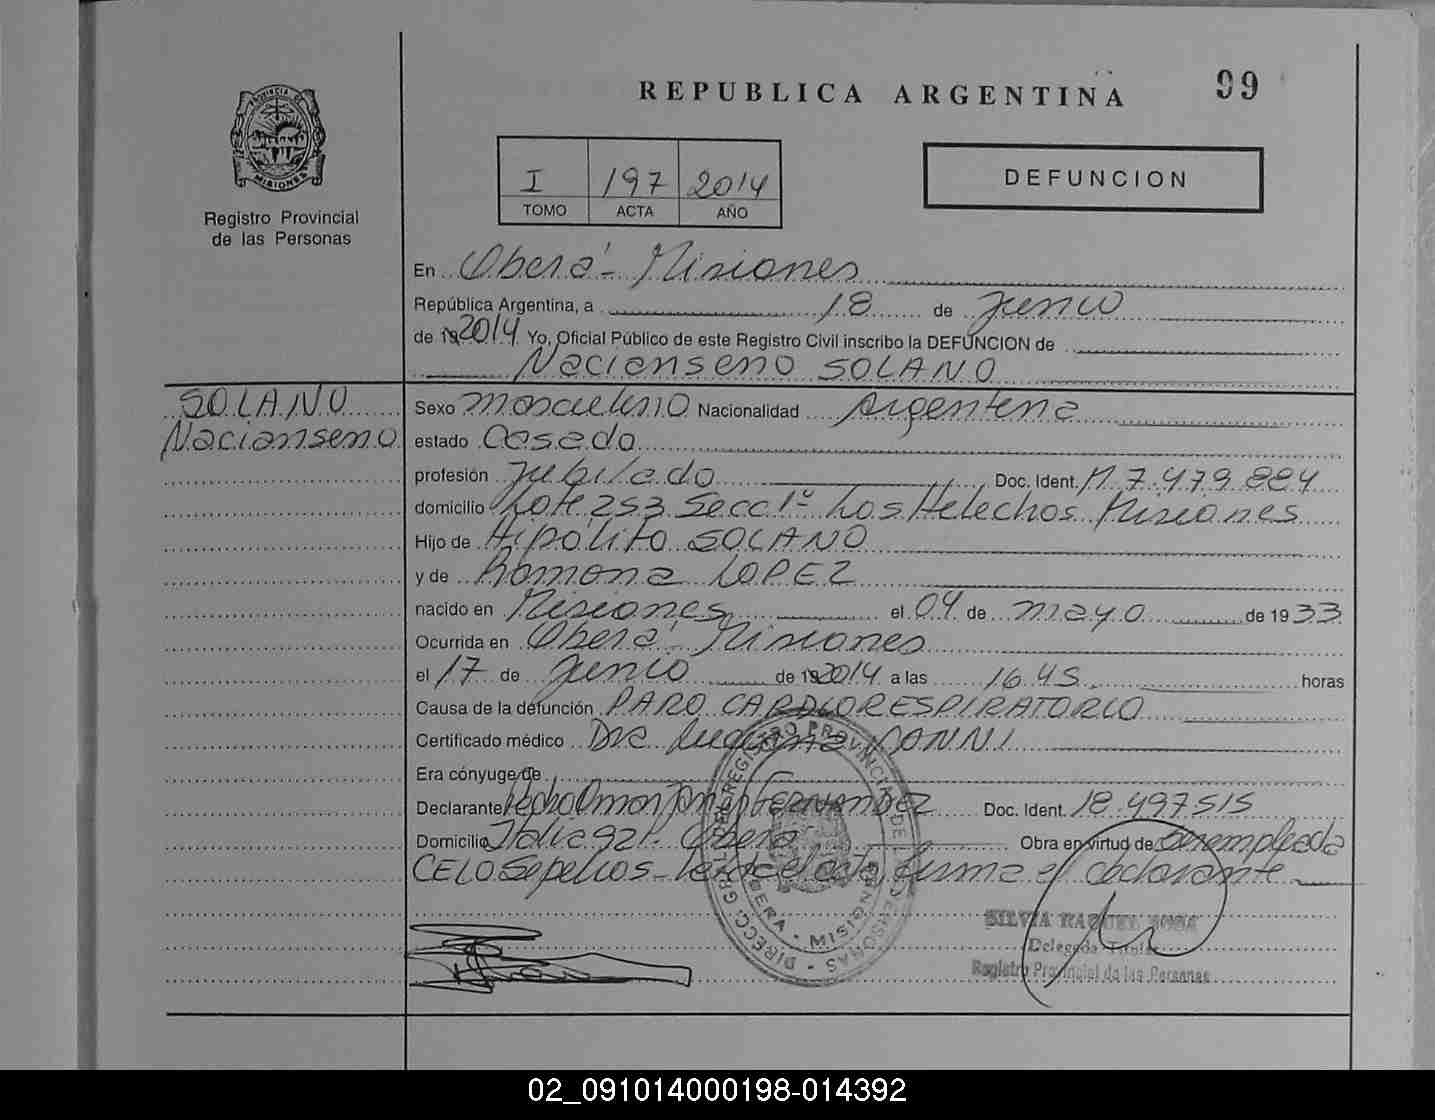 REPUBLICA ARGENTINA
99
PROVINCIA DE
MISIONES
Registro Provincial
de las Personas
I 197 2014
TOMO ACTA AÑO
DEFUNCION
En Oberá - Misiones
República Argentina, a 18 de Junio
de 19 2014 Yo, Oficial Público de este Registro Civil inscribo la DEFUNCION de
Nacianseno SOLANO
SOLANO
Nacianseno
Sexo masculino Nacionalidad Argentina
estado Casado
profesión Jubilado Doc. Ident. M 7.479.884
domicilio Lote 253 Secc 1º Los Helechos Misiones
Hijo de Hipólito SOLANO
y de Ramona LOPEZ
nacido en Misiones el 04 de mayo de 1933
Ocurrida en Oberá - Misiones
el 17 de Junio de 19 2014 a las 16.45 horas
Causa de la defunción PARO CARDIORESPIRATORIO
Certificado médico Dra. VANNI
Era cónyuge de
Declarante Pedro Omar FERNANDEZ Doc. Ident. 18.497515
Domicilio Italia 921 - Oberá Obra en virtud de Ser empleado
CELO Sepelios - Leida el acta, firma el declarante
DIRECC. GRAL. DEL REGISTRO PROVINCIAL DE LAS PERSONAS
OBERA - MISIONES
SILVIA RAQUEL SOSA
Delegada Titular
Registro Provincial de las Personas
02_091014000198-014392